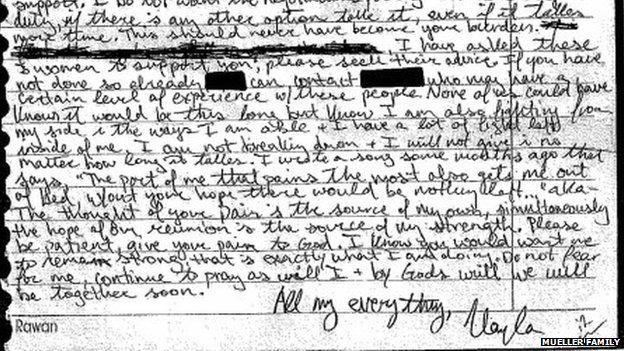 support. I do not want the
duty, if there is any other option take it, even if it takes
more time. This should never have become your burden. I
I have asked these
women to support you; please seek their advice. If you have
not done so already can contact who may have a
certain level of experience w/ these people. None of us could have
known it would be this long but know I am also fighting from
my side in the ways I am able + I have a lot of fight left
inside of me. I am not breaking down + I will not give in no
matter how long it takes. I wrote a song some months ago that
says, "The part of me that pains the most also gets me out
of bed, w/out your hope there would be nothing left..." aka-
The thought of your pain is the source of my own, simultaneously
the hope of our reunion is the source of my strength. Please
be patient, give your pain to God. I know you would want me
to remain strong that's exactly what I am doing. Do not fear
for me, continue to pray as will I + by God's will we will
be together soon.
All my everything, Kayla
Rawan
MUELLER FAMILY